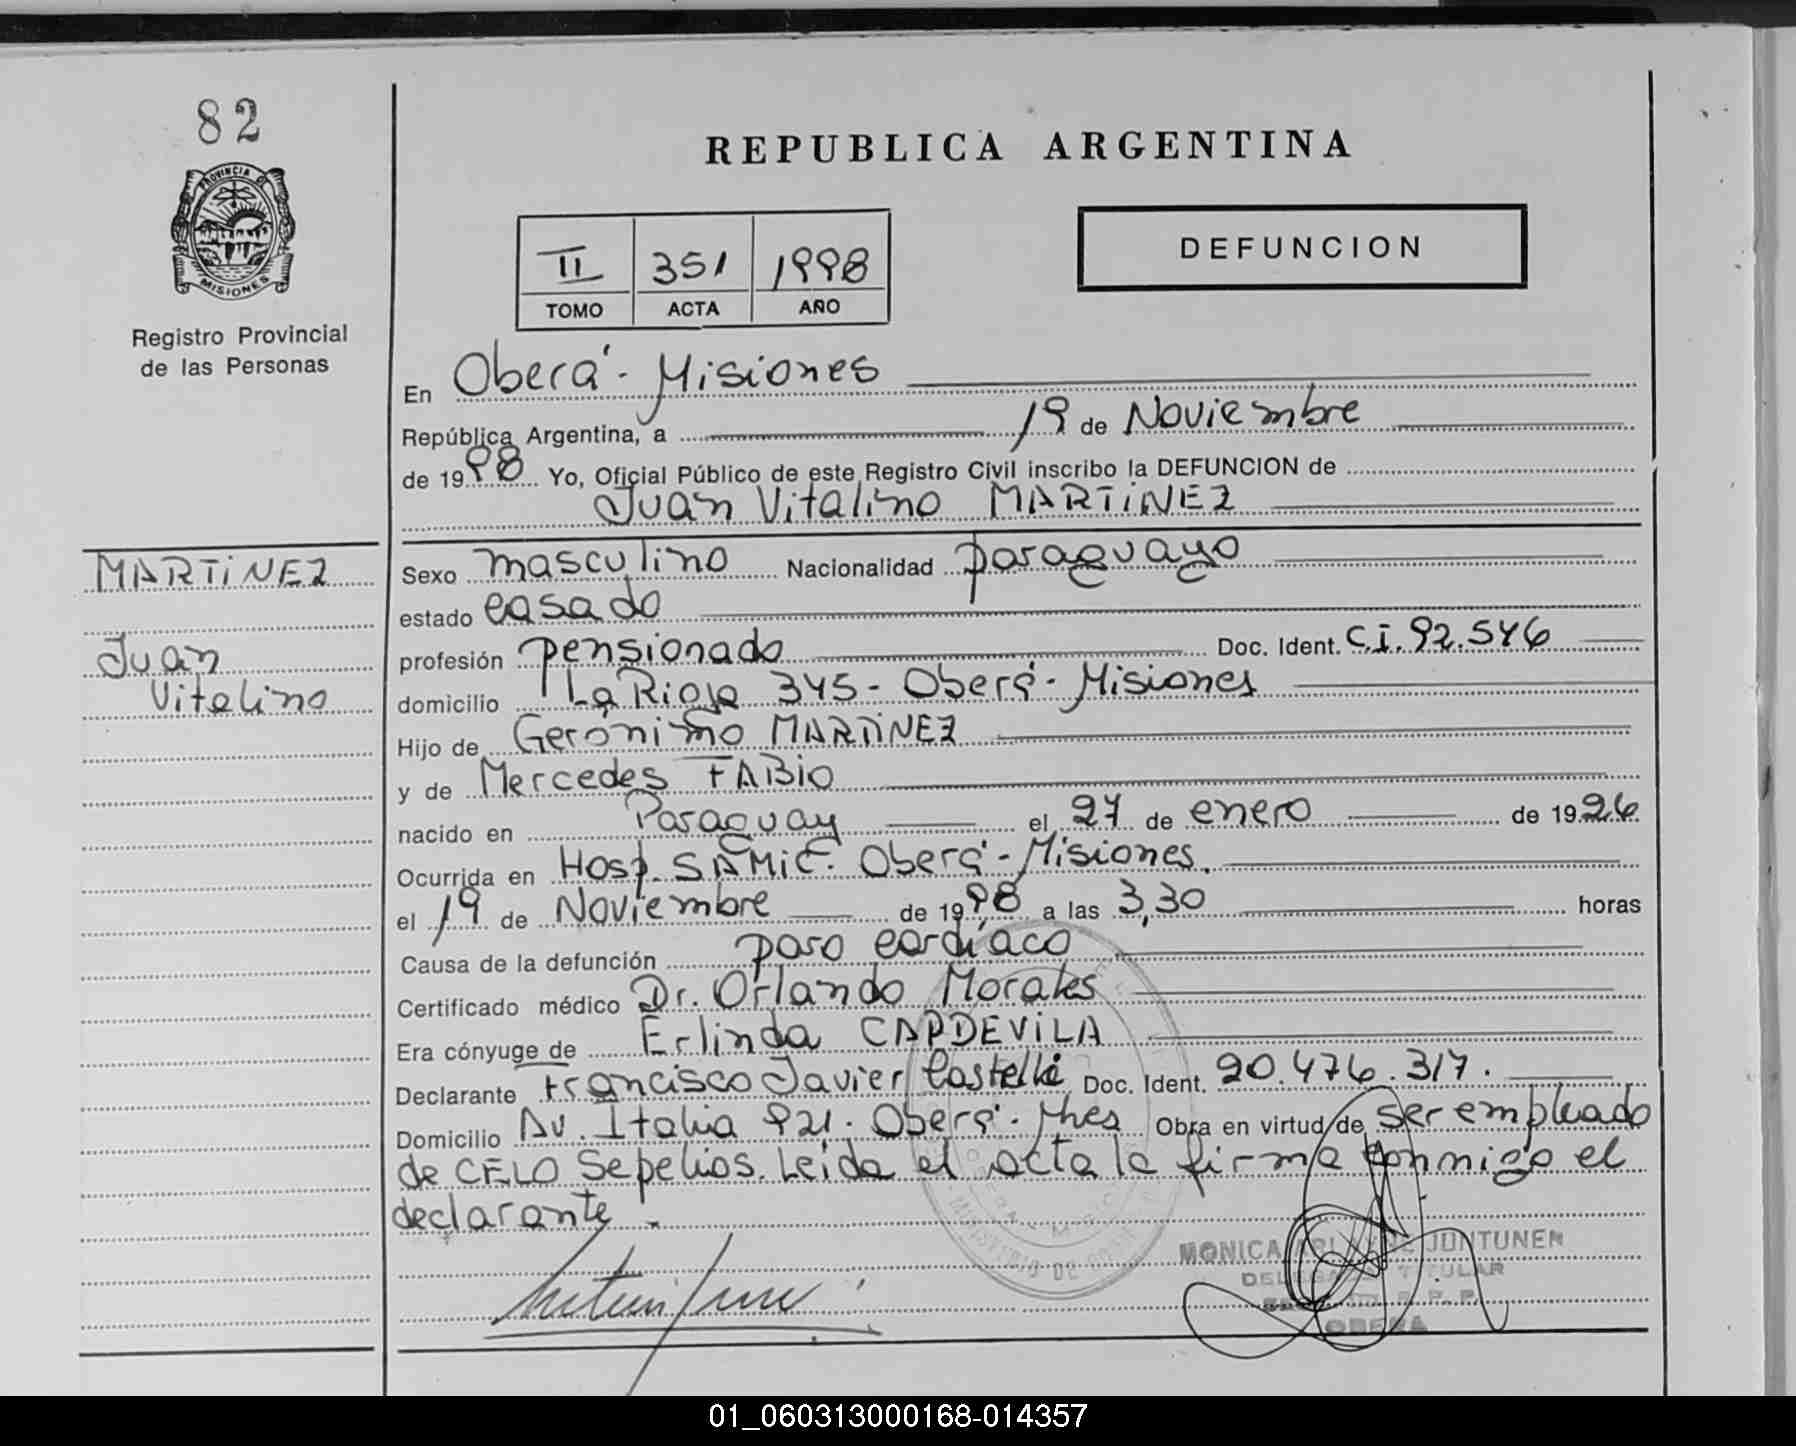 82
PROVINCIA DE
MISIONES
Registro Provincial
de las Personas
REPUBLICA ARGENTINA
II 351 1998
TOMO ACTA AÑO
DEFUNCION
En Oberá - Misiones
República Argentina, a 19 de Noviembre
de 1998 Yo, Oficial Público de este Registro Civil inscribo la DEFUNCION de
Juan Vitalino MARTINEZ
MARTINEZ
Juan
Vitalino
Sexo masculino Nacionalidad paraguayo
estado casado
profesión pensionado Doc. Ident. C.I. 92.546
domicilio La Rioja 345 - Oberá - Misiones
Hijo de Gerónimo MARTINEZ
y de Mercedes FABIO
nacido en Paraguay el 27 de enero de 1926
Ocurrida en Hosp. SAMIC. Oberá - Misiones.
el 19 de Noviembre de 1998 a las 3,30 horas
Causa de la defunción paro cardíaco
Certificado médico Dr. Orlando Morales
Era cónyuge de Erlinda CAPDEVILA
Declarante Francisco Javier Castelli Doc. Ident. 20.476.317.
Domicilio Av. Italia 921. Oberá - Mnes Obra en virtud de ser empleado
de CELO Sepelios. Leída el acta la firma conmigo el
declarante.
MONICA JUNTUNEN
TITULAR
R. P. P.
OBERA
01_060313000168-014357